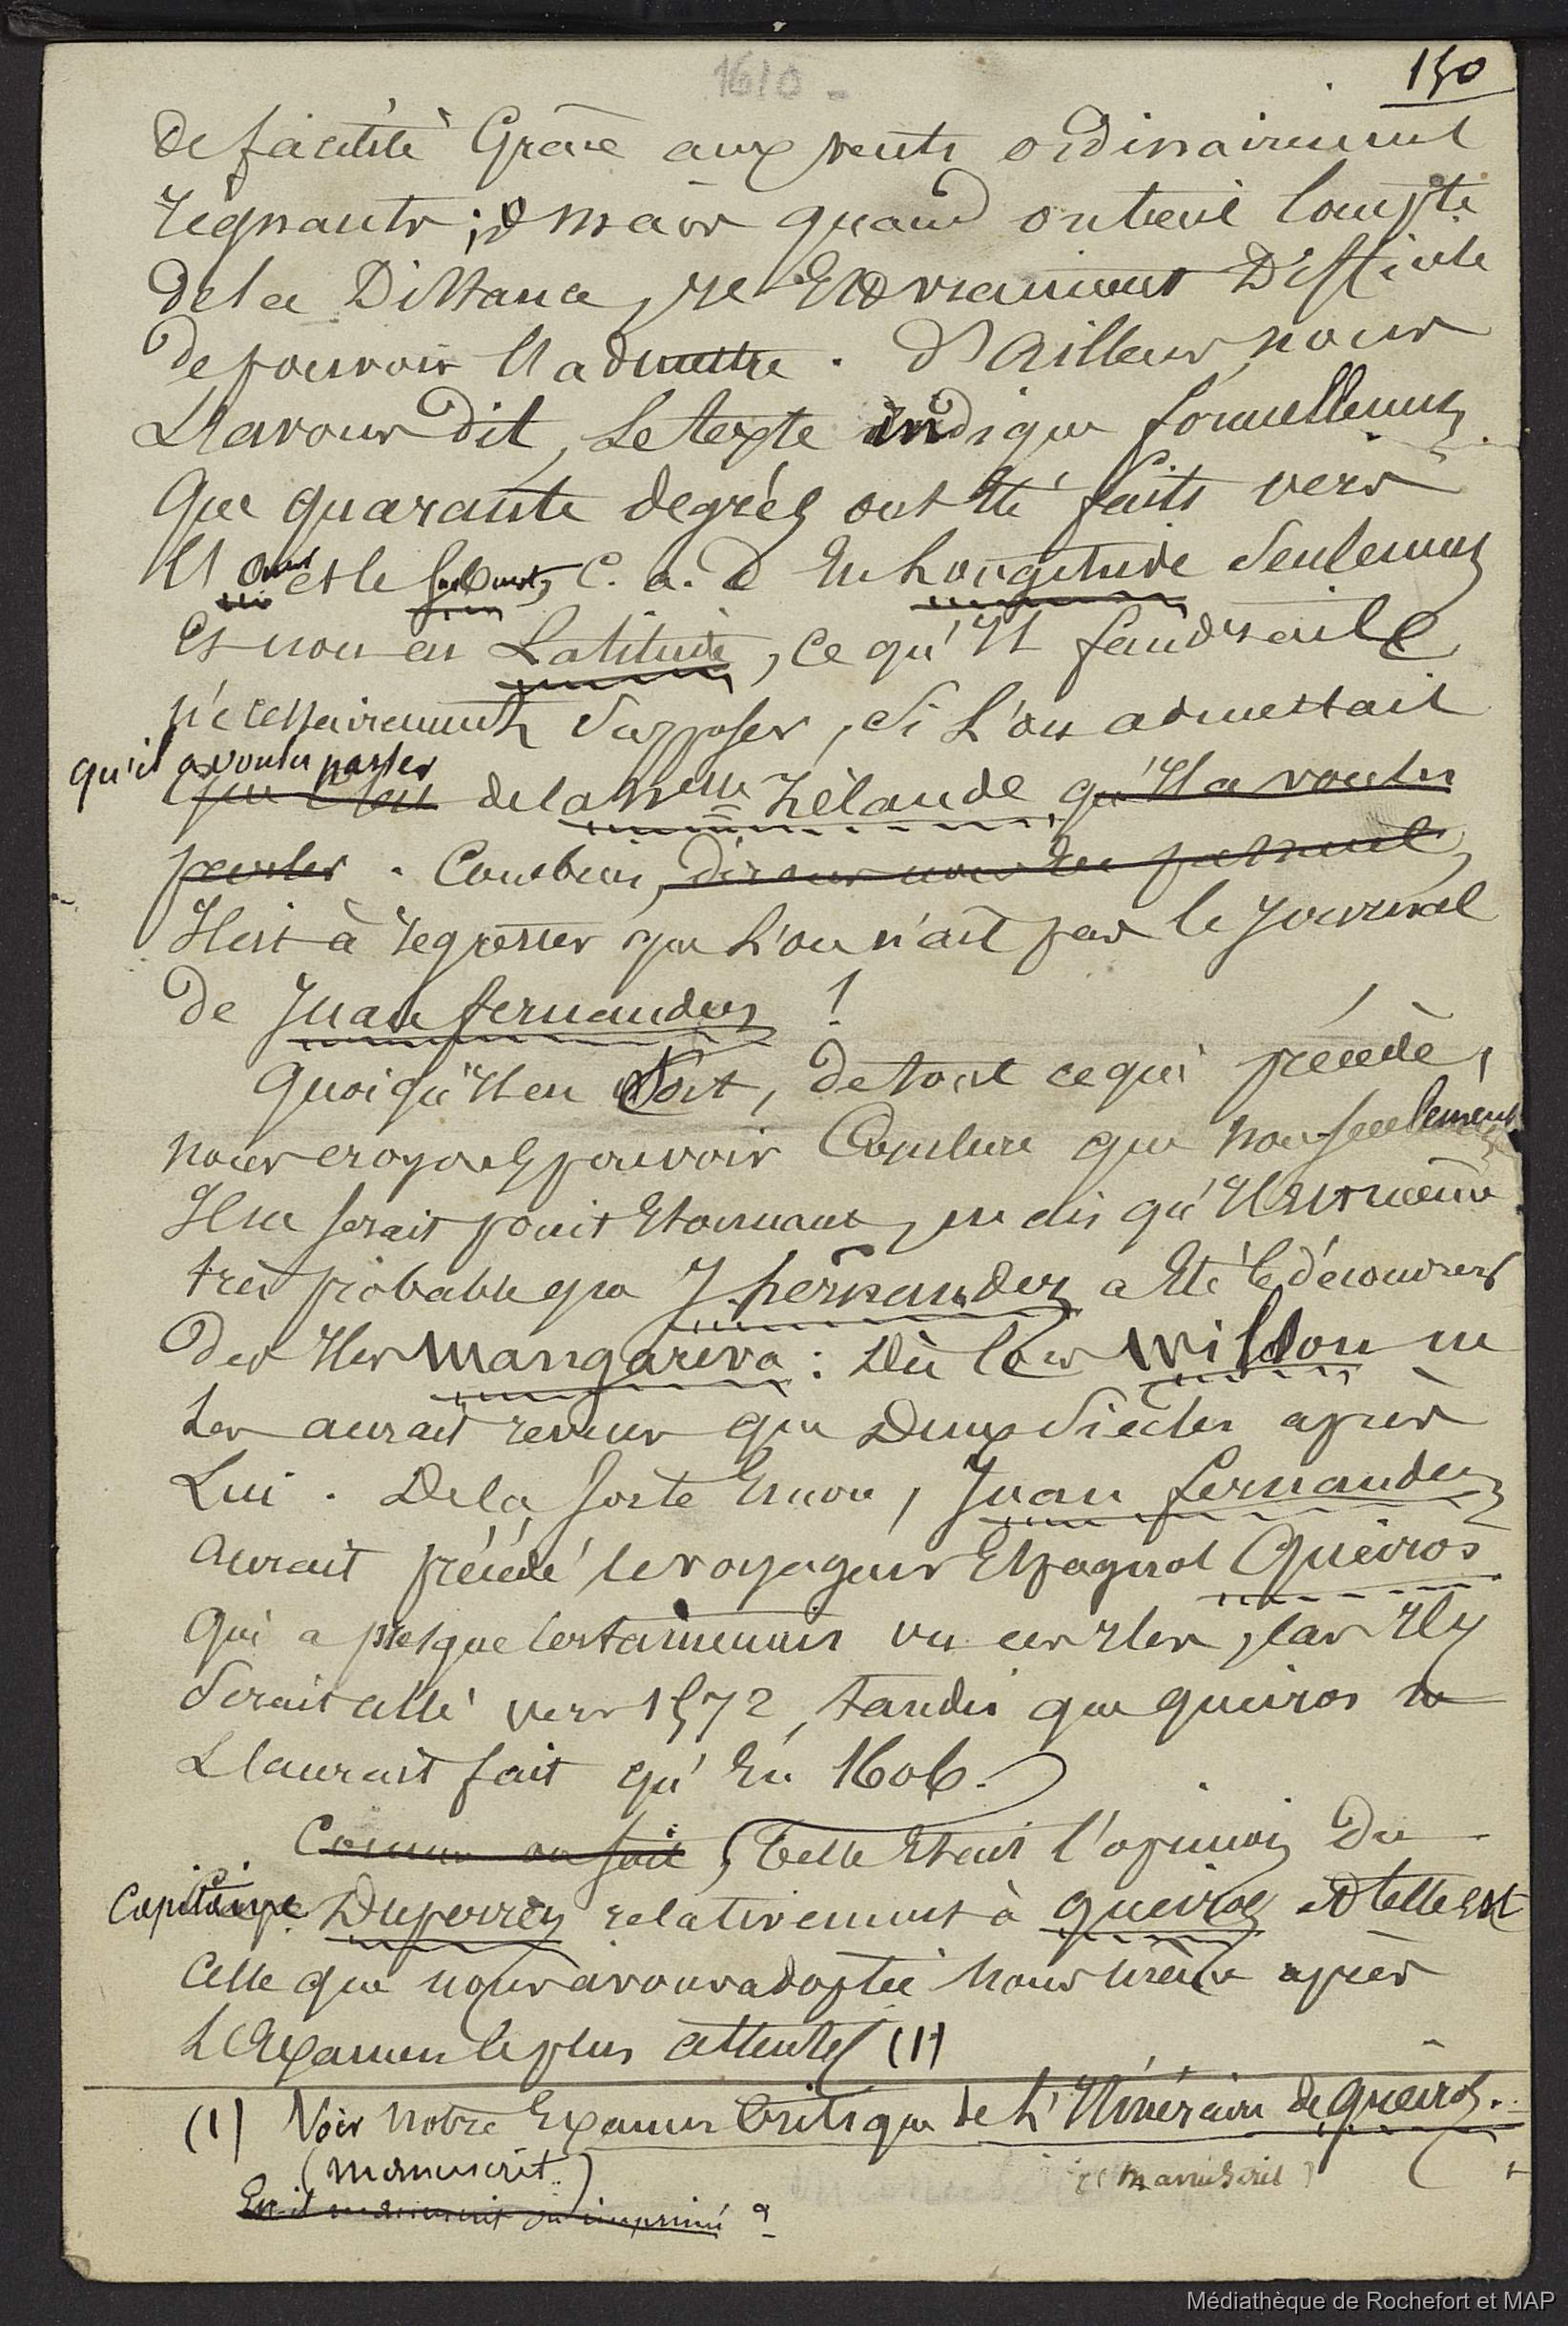 1610 -
150
de facilité Grâce aux vents ordinairement
régnants ; mais quand on tient Compte
de la Distance, il Est vraiment Difficile
de pouvoir l'admettre. D'Ailleurs, nous
L'avons Dit, Le texte indique formellement
que quarante degrés ont été faits vers
l'Ouest et le C. a. d En Longitude Seulement
Et non en Latitude, Ce qu'Il faudrait
nécessairement Supposer, Si L'on admettait
qu'il a voulu parler
de la Nelle Zélande qu'Il a voulu
parler. Combien, disons nous En passant,
Il est à regretter que L'on n'ait pas le Journal
de Juan fernandez !
Quoiqu'Il en Soit, de tout ce qui précède,
nous croyons pouvoir Conclure que non Seulement
Il ne serait point Etonnant, mais qu'Il est même
très probable que J. fernandez a Eté le découvreur
des Iles Mangareva : Dès lors Wilson ne
Les aurait revues que Deux Siècles après
Lui. De la Sorte Encore, Juan fernandez
Aurait précédé le voyageur Espagnol Queiros
Qui a presque Certainement vu ces Iles, Car Il y
Serait allé vers 1572, tandis que queiros ne
L'aurait fait qu'En 1606.
Comme on sait, Telle Etait l'opinion Du
Capitaine Duperrey relativement à queiros et telle est
Celle que nous avons adoptée nous même après
L'Examen le plus attentif (1)
(1) Voir notre Examen Critique de L'Itinéraire de queiros.
(manuscrit)
(manuscrit)
Est-il manuscrit ou imprimé ?
Médiathèque de Rochefort et MAP